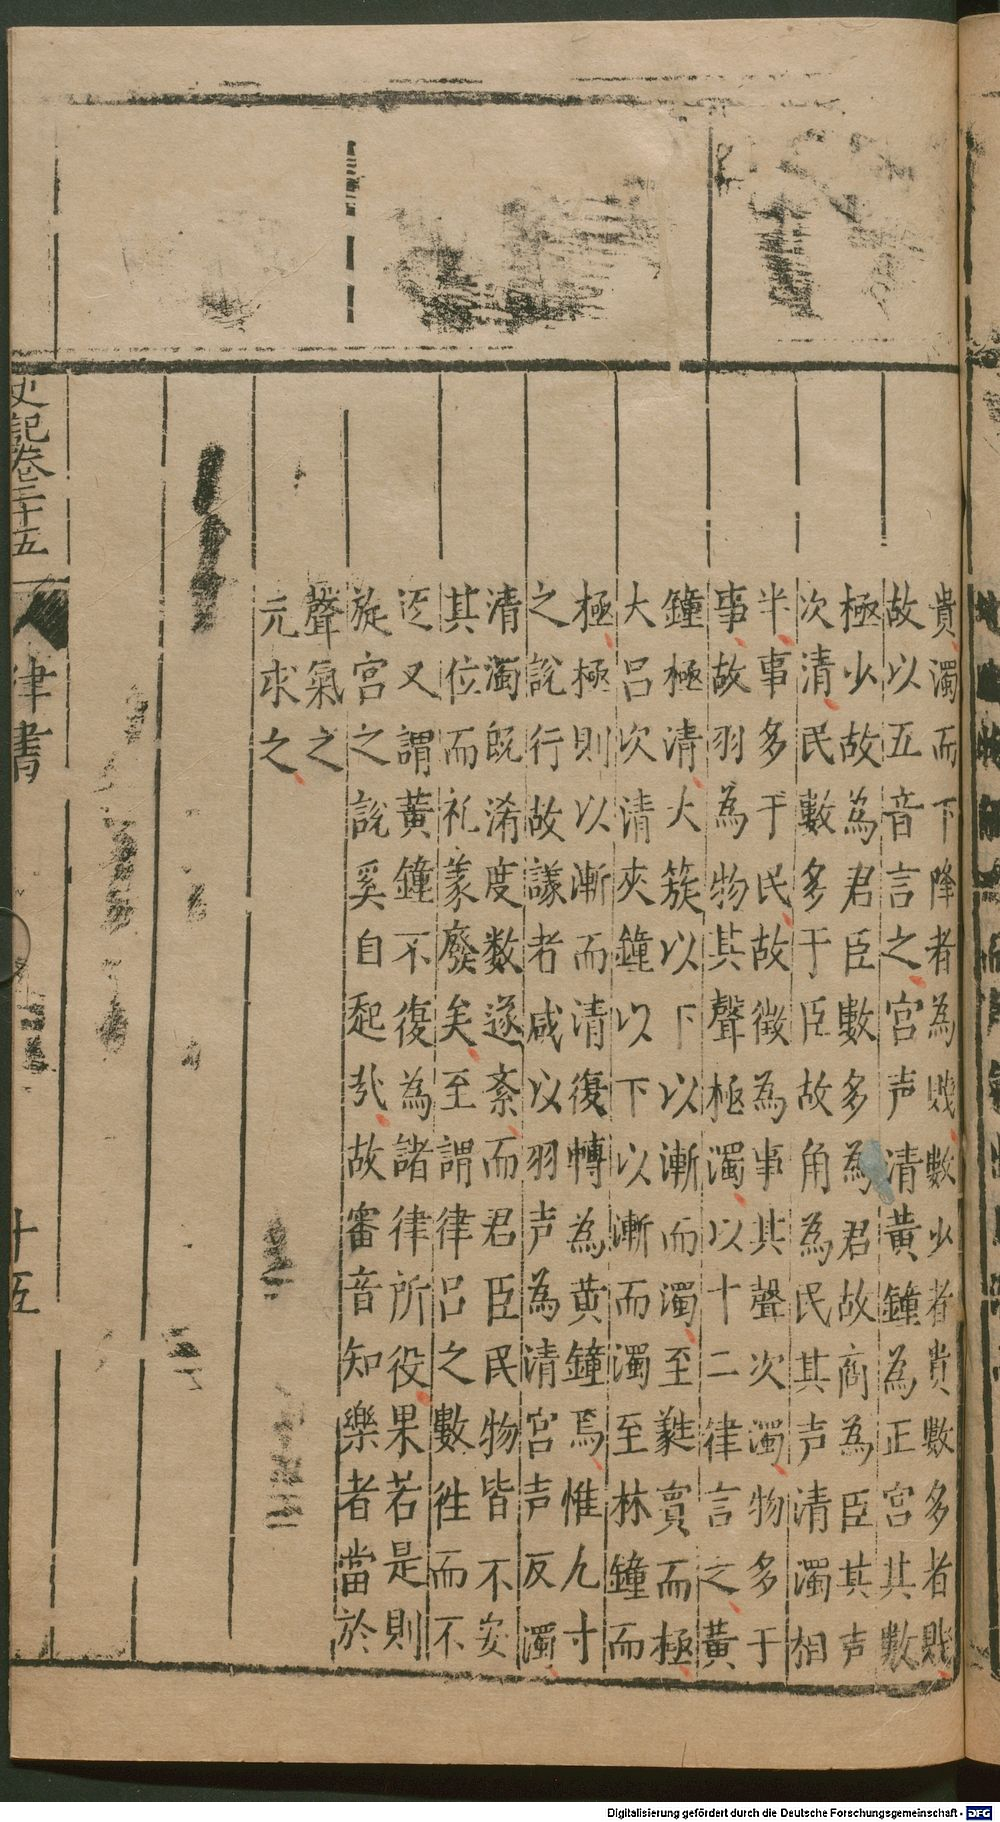 貴濁而下降者為賤數少者貴數多者賤
故以五音言之宮声清黃鐘為正宮其數
極少故為君臣數多為君故商為臣其声
次清民數多于臣故角為民其声清濁相
半事多于民故徵為事其聲次濁物多于
事故羽為物其聲極濁以十二律言之黃
鐘極清大簇以下以漸而濁至蕤賓而極
大呂次清夾鐘以下以漸而濁至林鐘而
極極則以漸而清復轉為黃鐘焉惟九寸
之說行故議者咸以羽声為清宮声反濁
清濁既淆度数遂紊而君臣民物皆不安
其位而礼義廢矣至謂律吕之數徃而不
迄又謂黃鐘不復為諸律所役果若是則
旋宮之說奚自起㢤故審音知樂者當於
聲氣之
元求之
史記卷二十五
律書
十五
Digitalisierung gefördert durch die Deutsche Forschungsgemeinschaft - DFG